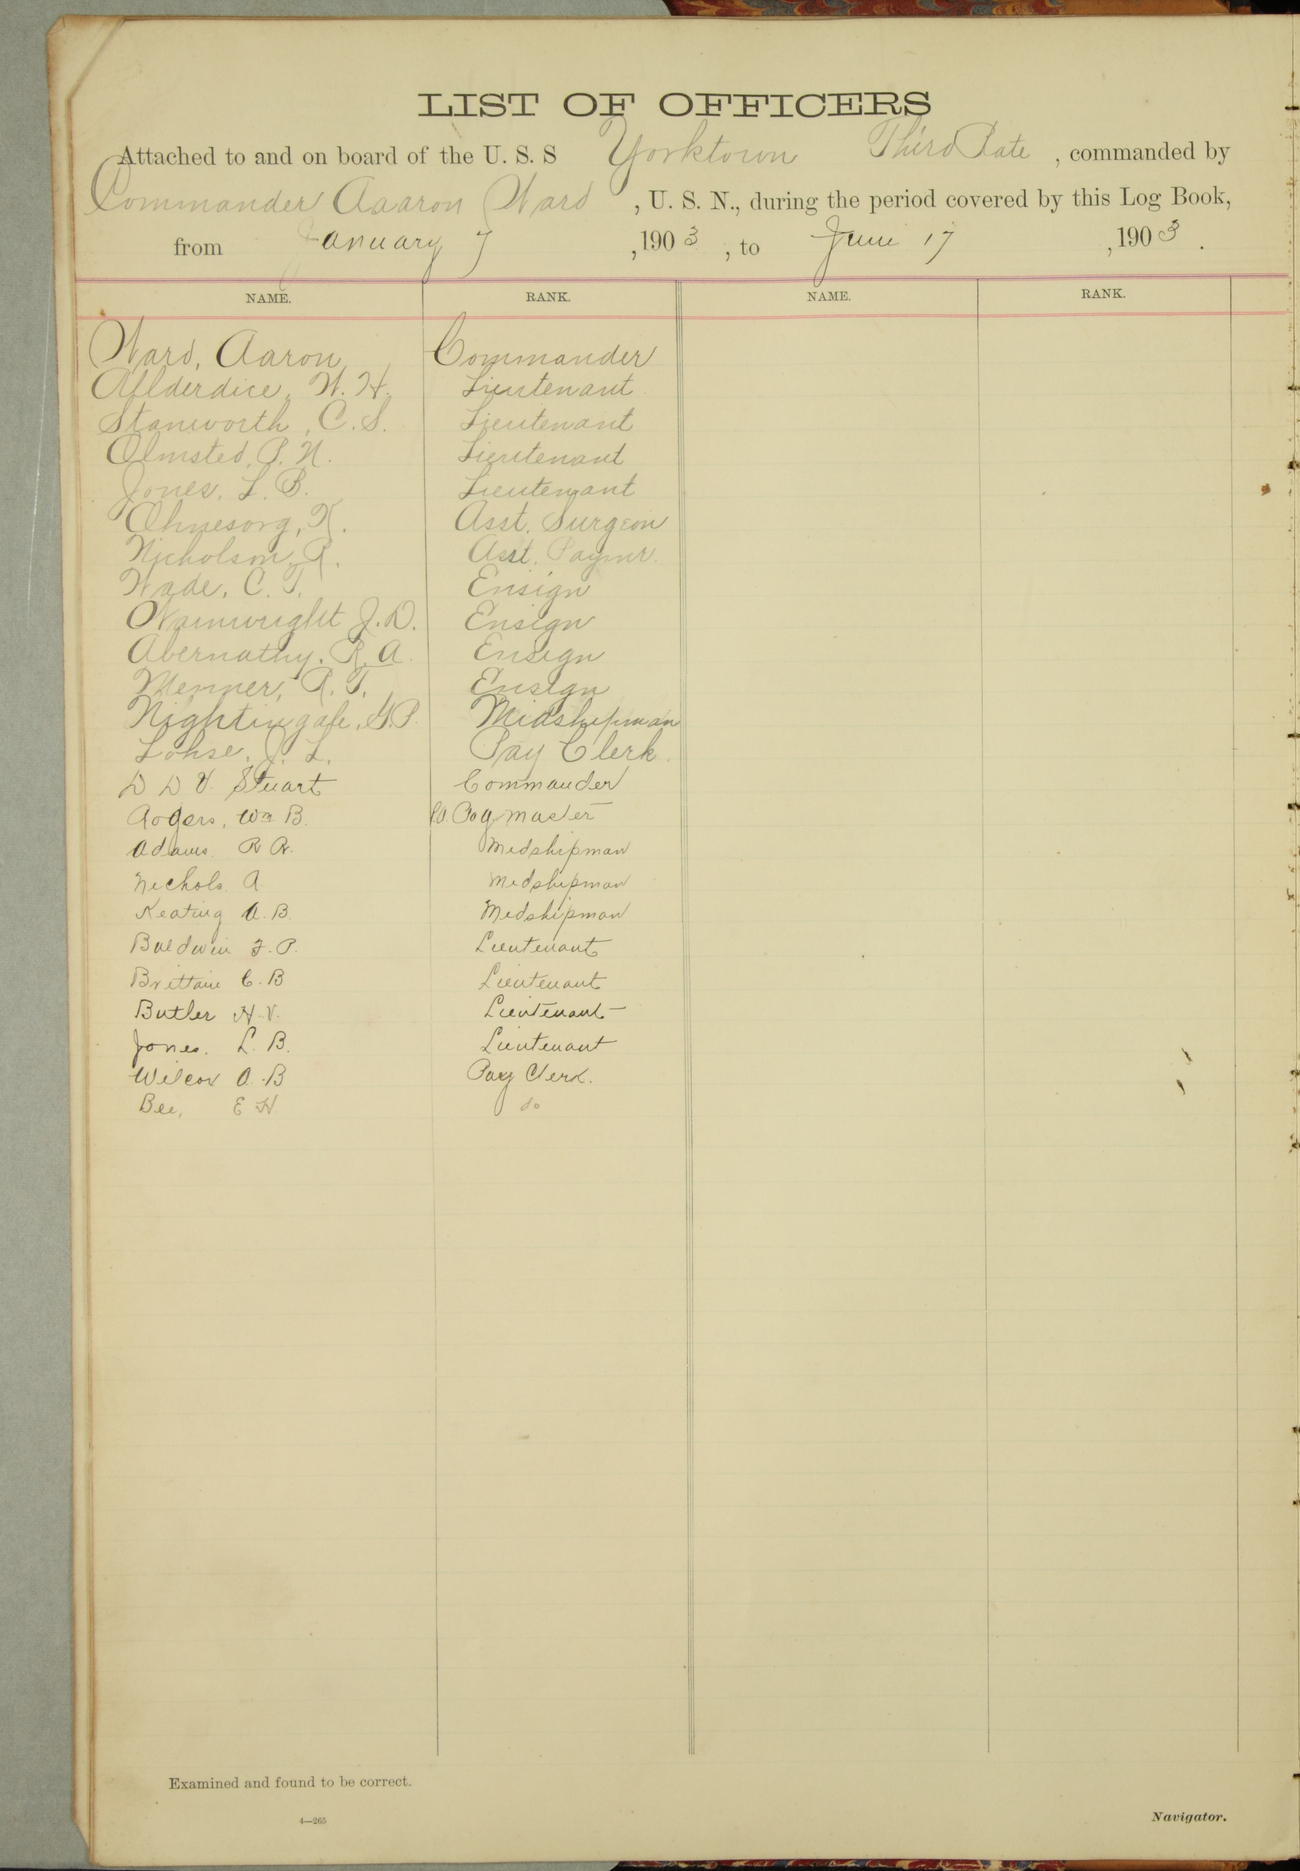 LIST OF OFFICERS
Attached to and on board of the U. S. S Yorktown Third Rate , commanded by
Commander Aaaron Ward , U. S. N., during the period covered by this Log Book,
from January 7 , 1903 , to June 17 , 1903 .
NAME. RANK. NAME. RANK.
Ward, Aaron Commander
Allderdice, W. H. Lieutenant
Stanworth, C. S. Lieutenant
Olmsted, P. N. Lieutenant
Jones, L. B. Lieutenant
Ohnesorg, K. Asst. Surgeon
Nicholson, R. Asst. Paymr.
Wade, C. T. Ensign
Wainwright J. D. Ensign
Abernathy, R. A. Ensign
Menner, R. T. Ensign
Nightingale, G. P. Midshipman
Lohse, J. L. Pay Clerk.
D D V. Stuart Commander
Rogers, Wm B. Paymaster
Adams R A. Midshipman
Nichols. A Midshipman
Keating A. B. Midshipman
Baldwin F. P. Lieutenant
Brittain C. B Lieutenant
Butler H. V. Lieutenant
Jones. L. B. Lieutenant
Wilcox O. B Pay Clerk.
Bee, E H. do
Examined and found to be correct.
4—265
Navigator.